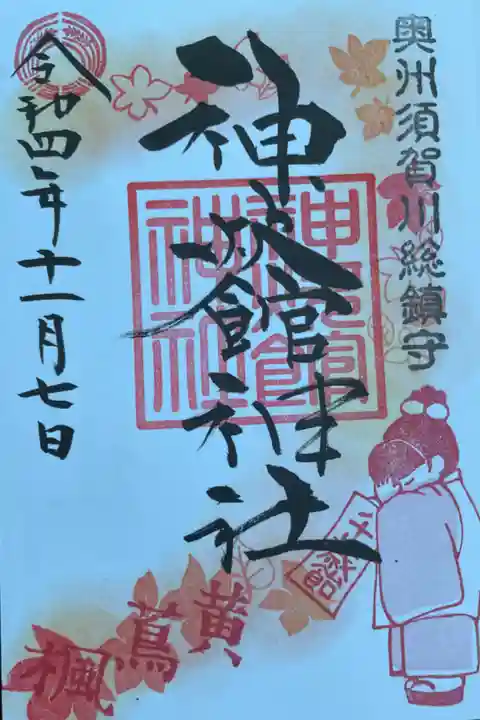 奥州須賀川総鎮守
神炊館神社
神炊館神社
令和四年十一月七日
千歳飴
黄蔦楓